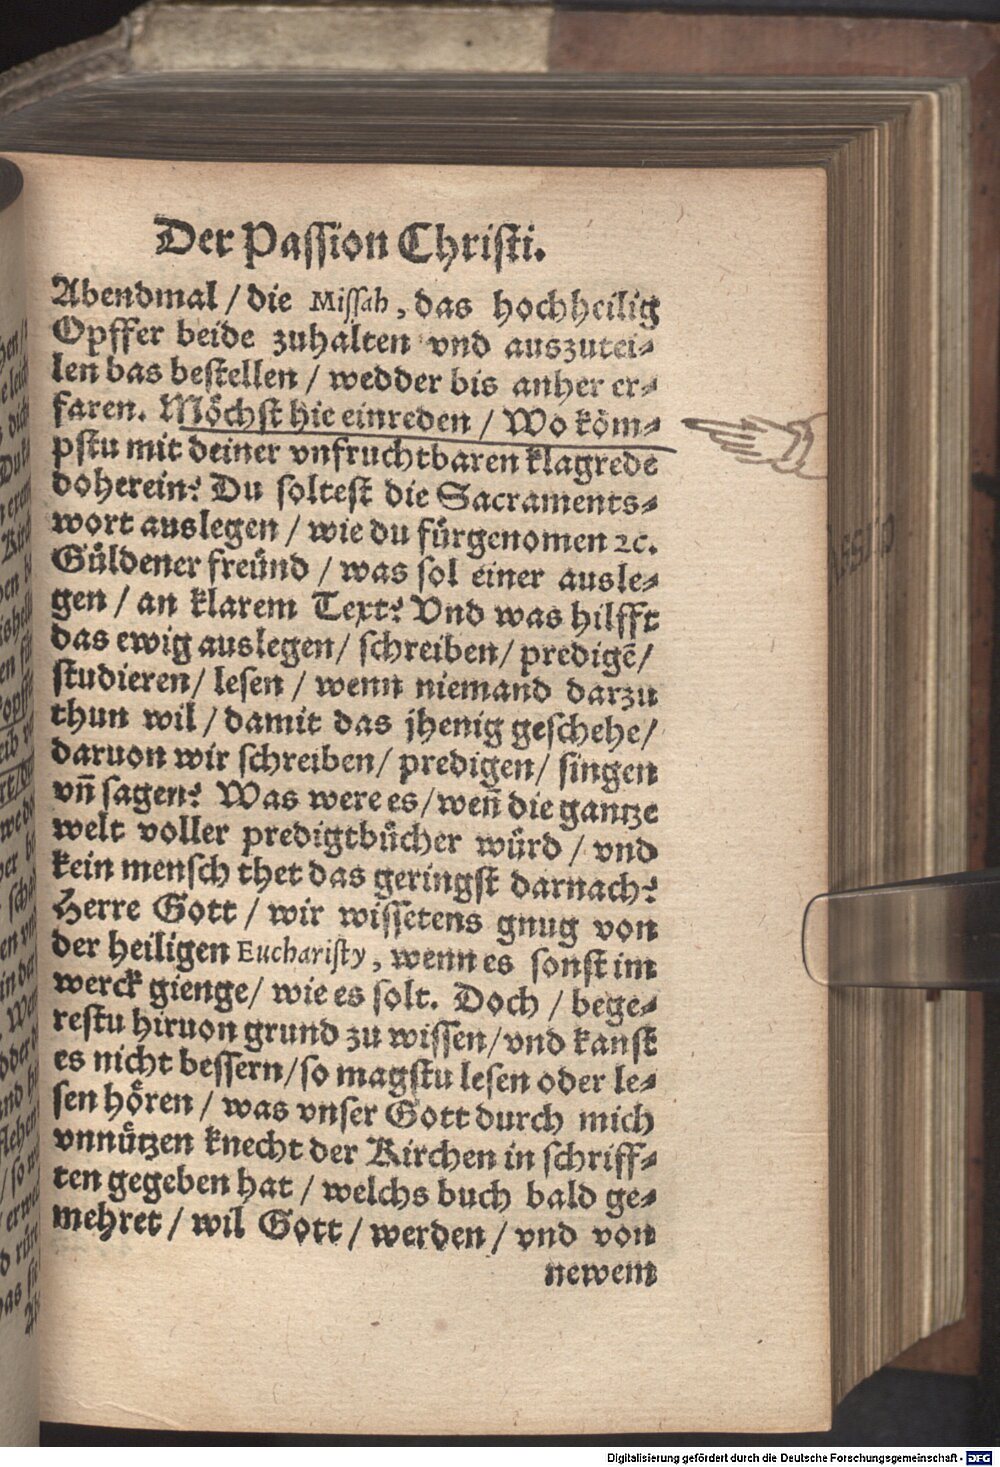 Der Passion Christi.
Abendmal / die Missah, das hochheilig
Opffer beide zuhalten vnd auszutei⸗
len bas bestellen / wedder bis anher er⸗
faren. Möchst hie einreden / Wo köm⸗
pstu mit deiner vnfruchtbaren klagrede
doherein? Du soltest die Sacraments⸗
wort auslegen / wie du fürgenomen ꝛc.
Güldener freünd / was sol einer ausle⸗
gen / an klarem Text? Vnd was hilfft
das ewig auslegen / schreiben / predigē /
studieren / lesen / wenn niemand darzu
thun wil / damit das jhenig geschehe /
daruon wir schreiben / predigen / singen
vn̄ sagen? Was were es / wen̄ die gantze
welt voller predigtbücher würd / vnd
kein mensch thet das geringst darnach?
Herre Gott / wir wissetens gnug von
der heiligen Eucharisty, wenn es sonst im
werck gienge / wie es solt. Doch / bege⸗
restu hiruon grund zu wissen / vnd kanst
es nicht bessern / so magstu lesen oder le⸗
sen hören / was vnser Gott durch mich
vnnützen knecht der Kirchen in schriff⸗
ten gegeben hat / welchs buch bald ge⸗
mehret / wil Gott / werden / vnd von
newem
Digitalisierung gefördert durch die Deutsche Forschungsgemeinschaft - DFG